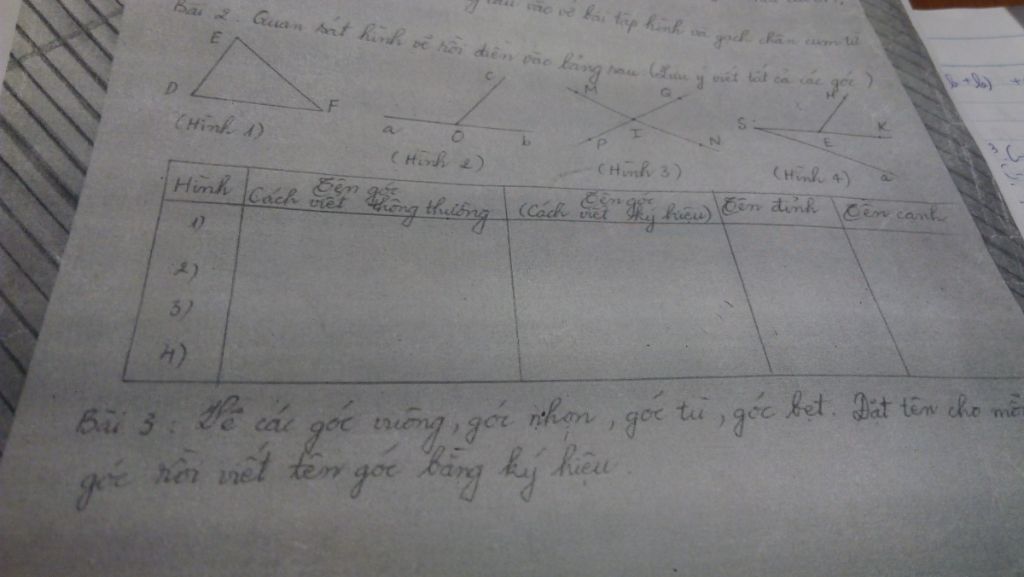 vào vẽ bài tập hình và gạch chân cụm từ
Bài 2. Quan sát hình vẽ rồi điền vào bảng sau (Lưu ý viết tất cả các góc)
E
D
F
(Hình 1)
c
a
O
b
(Hình 2)
M
Q
I
P
N
(Hình 3)
S
H
E
K
a
(Hình 4)
Hình
Tên góc
Cách viết thông thường
Tên góc
(Cách viết ký hiệu)
Tên đỉnh
Tên cạnh
1)
2)
3)
4)
Bài 3: Vẽ các góc vuông, góc nhọn, góc tù, góc bẹt. Đặt tên cho mỗi
góc rồi viết tên góc bằng ký hiệu.